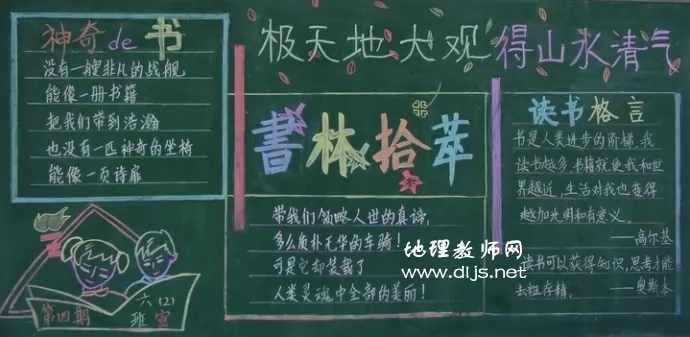 神奇de书
没有一艘非凡的战舰
能像一册书籍
把我们带到浩瀚
也没有一匹神奇的坐椅
能像一页诗扉
第四期
六(2)
班宣
极天地大观 得山水清气
書林拾萃
带我们领略人世的真谛,
多么质朴无华的车骑!
可是它却装载了
人类灵魂中全部的美丽!
地理教师网
www.dljs.net
读书格言
书是人类进步的阶梯,我
读书越多,书籍就使我和世
界越近,生活对我也变得
越加光明和有意义。
——高尔基
读书可以获得知识,思考才能
去粗存精。——奥斯本